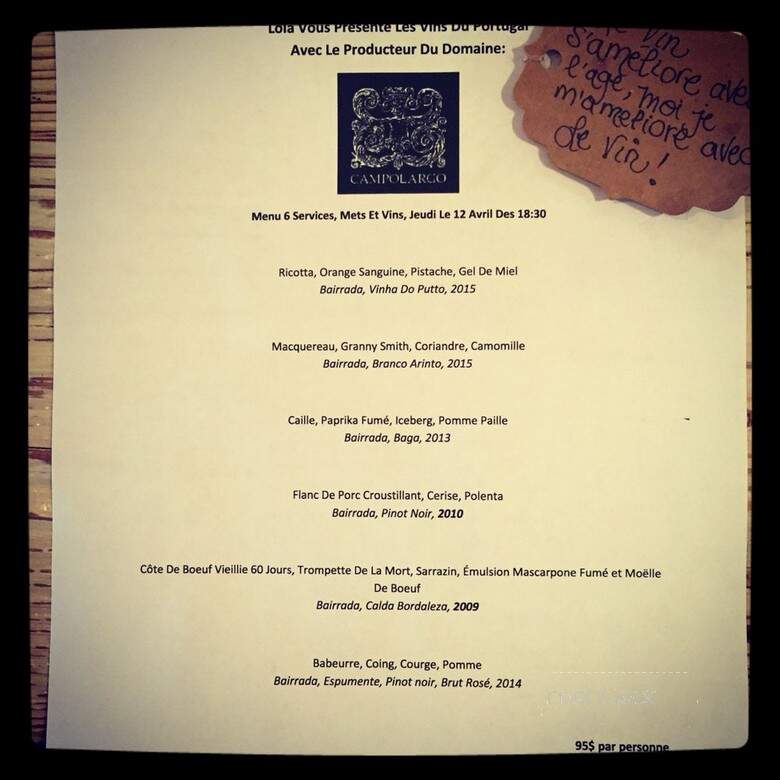 Lola Vous Présente Les Vins Du Portugal
Avec Le Producteur Du Domaine:
CAMPOLARGO
Menu 6 Services, Mets Et Vins, Jeudi Le 12 Avril Des 18:30
Ricotta, Orange Sanguine, Pistache, Gel De Miel
Bairrada, Vinha Do Putto, 2015
Macquereau, Granny Smith, Coriandre, Camomille
Bairrada, Branco Arinto, 2015
Caille, Paprika Fumé, Iceberg, Pomme Paille
Bairrada, Baga, 2013
Flanc De Porc Croustillant, Cerise, Polenta
Bairrada, Pinot Noir, 2010
Côte De Boeuf Vieillie 60 Jours, Trompette De La Mort, Sarrazin, Émulsion Mascarpone Fumé et Moëlle
De Boeuf
Bairrada, Calda Bordaleza, 2009
Babeurre, Coing, Courge, Pomme
Bairrada, Espumente, Pinot noir, Brut Rosé, 2014
95$ par personne
vin
s'améliore ave
l'age, moi je
m'améliore avec
de vin!